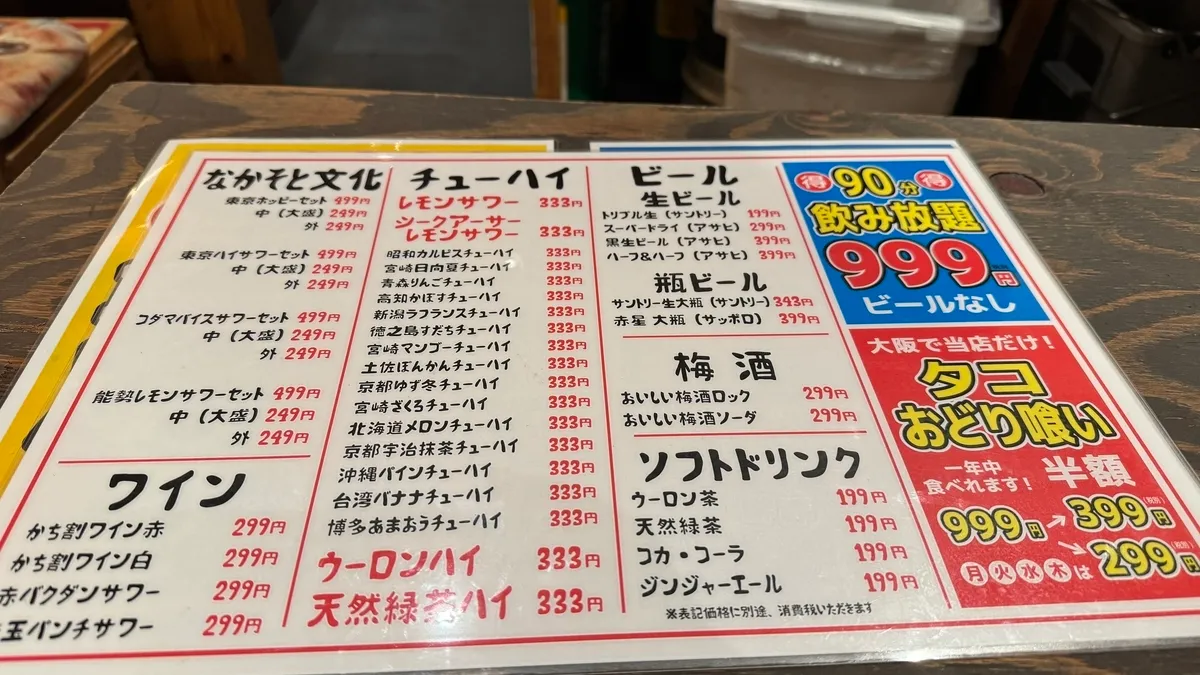 なかそと文化
東京ホッピーセット 499円
中（大盛）249円
外 249円
東京ハイサワーセット 499円
中（大盛）249円
外 249円
コダマバイスサワーセット 499円
中（大盛）249円
外 249円
能勢レモンサワーセット 499円
中（大盛）249円
外 249円
ワイン
かち割ワイン赤 299円
かち割ワイン白 299円
赤バクダンサワー 299円
玉パンチサワー 299円
チューハイ
レモンサワー 333円
シークアーサー
レモンサワー 333円
昭和カルピスチューハイ 333円
宮崎日向夏チューハイ 333円
青森りんごチューハイ 333円
高知かぼすチューハイ 333円
新潟ラフランスチューハイ 333円
徳之島すだちチューハイ 333円
宮崎マンゴーチューハイ 333円
土佐ぽんかんチューハイ 333円
京都ゆず冬チューハイ 333円
宮崎ざくろチューハイ 333円
北海道メロンチューハイ 333円
京都宇治抹茶チューハイ 333円
沖縄パインチューハイ 333円
台湾バナナチューハイ 333円
博多あまおうチューハイ 333円
ウーロンハイ 333円
天然緑茶ハイ 333円
ビール
生ビール
トリプル生（サントリー）199円
スーパードライ（アサヒ）299円
黒生ビール（アサヒ）399円
ハーフ&ハーフ（アサヒ）399円
瓶ビール
サントリー生大瓶（サントリー）343円
赤星 大瓶（サッポロ）399円
梅酒
おいしい梅酒ロック 299円
おいしい梅酒ソーダ 299円
ソフトドリンク
ウーロン茶 199円
天然緑茶 199円
コカ・コーラ 199円
ジンジャーエール 199円
※表記価格に別途、消費税いただきます
得 90分 得
飲み放題
999円
ビールなし
大阪で当店だけ！
タコ
おどり喰い
一年中
食べれます！
半額
999円→399円（税別）
月火水木は→299円（税別）